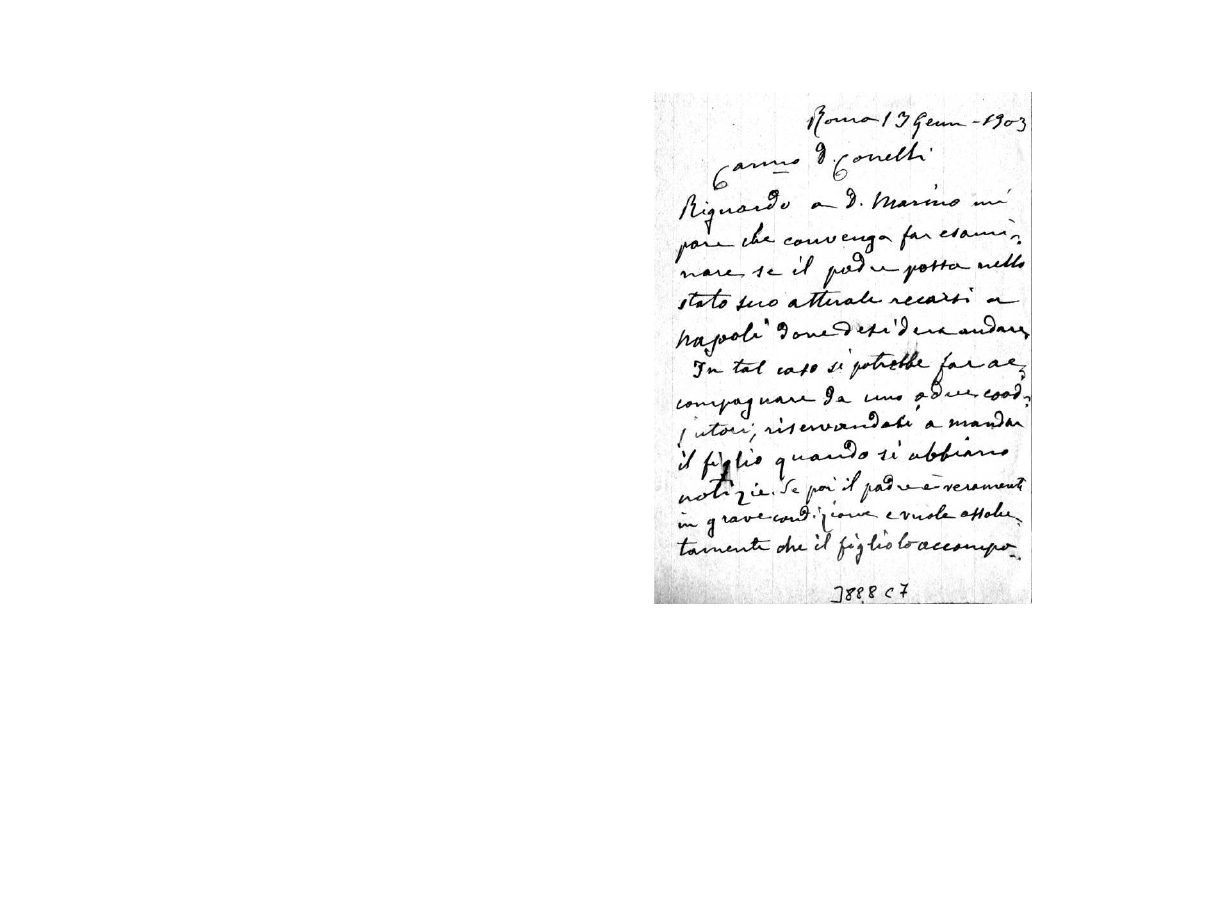 Roma 13 Genn - 1903
Carmo D. Conelli
Riguardo a D. Marino mi
pare che convenga far esami-
nare se il padre possa nello
stato suo attuale recarsi a
Napoli dove desidera andare,
In tal caso si potrebbe far ac-
compagnare da uno o due coad-
jutori, riservandosi a mandar
il figlio quando si abbiano
notizie. Se poi il padre è veramente
in grave condizione e vuole assolu-
tamente che il figlio lo accompa-
J888 C7